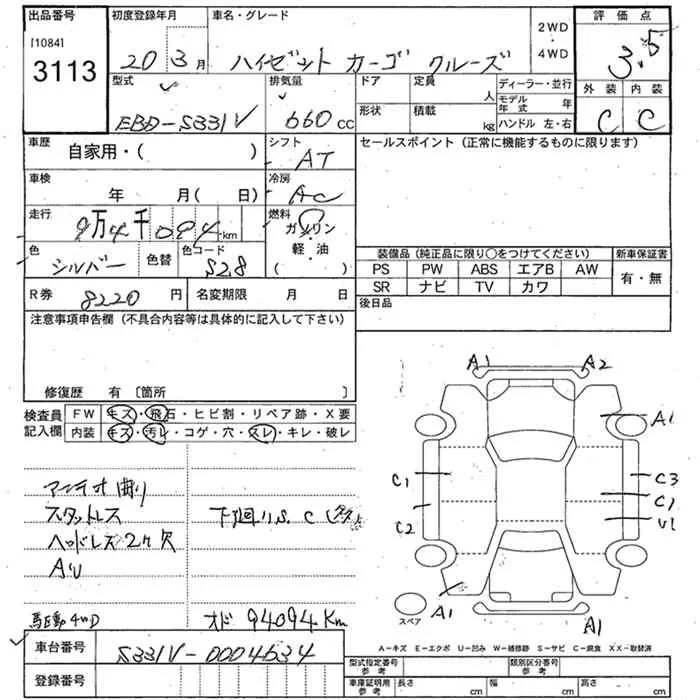 出品番号 初度登録年月 車名・グレード 2WD・4WD 評価点
[1084]
3113
20 3月 ハイゼット カーゴ クルーズ 3.5
型式 排気量 ドア 定員 人 ディーラー・並行 外装 内装
EBD-S331V 660cc 形状 積載 kg モデル年式 年 C C
ハンドル 左・右
車歴 自家用・( ) シフト AT セールスポイント (正常に機能するものに限ります)
車検 年 月( 日) 冷房 AC
走行 9万4千094km 燃料 ガソリン・軽油 ( )
色 シルバー 色替 色コード S28
装備品 (純正品に限り○をつけてください) 新車保証書
PS PW ABS エアB AW 有・無
SR ナビ TV カワ
R券 8220円 名変期限 月 日 後日品
注意事項申告欄 (不具合内容等は具体的に記入して下さい)
修復歴 有 〔箇所 〕
検査員記入欄 FW キズ・飛石・ヒビ割・リペア跡・X要
内装 キズ・汚レ・コゲ・穴・スレ・キレ・破レ
アンテナ曲り
スタッドレス 下廻りS.C
ヘッドレス2ヶ欠
AU
4WD オド 94094Km
A1 A2
A1
C1 C3
C1
C2 U1
A1 A1
スペア
A-キズ E-エクボ U-凹み W-補修跡 S-サビ C-腐食 XX-取替済
車台番号 S331V-0004634
登録番号
型式指定番号 参考 類別区分番号 参考
車庫証明用 参考 長さ cm 幅 cm 高さ cm